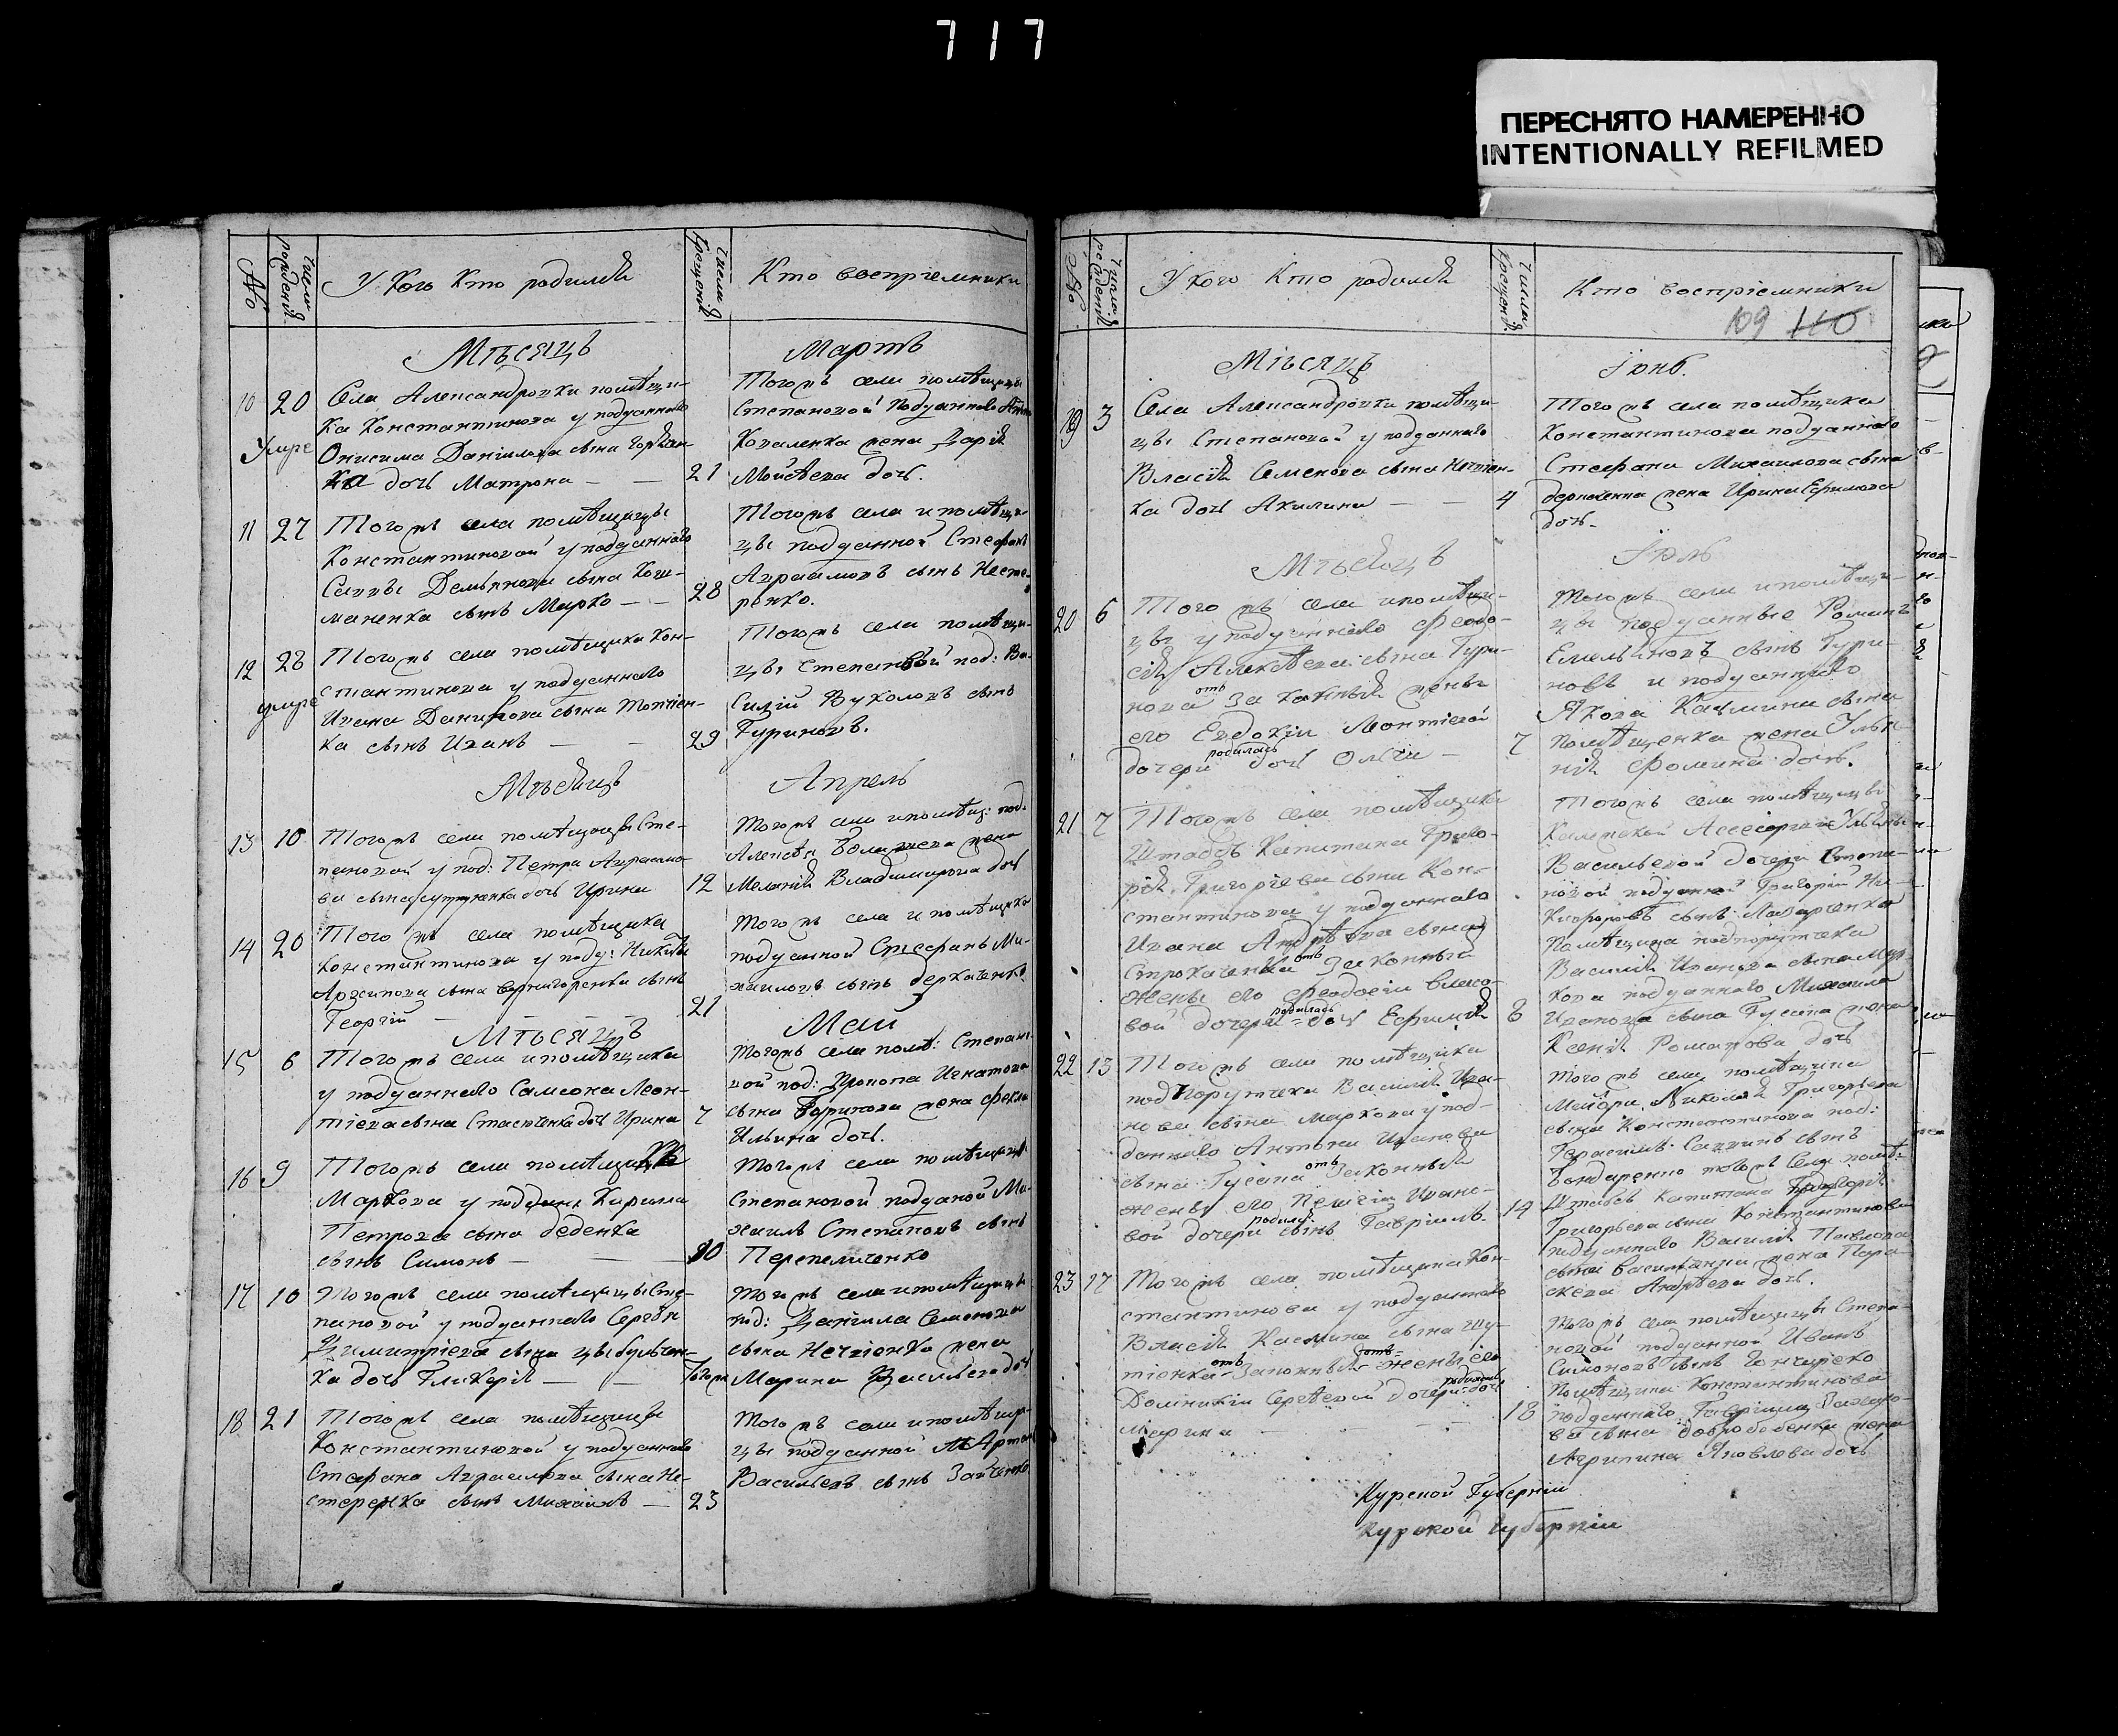 717
ПЕРЕСНЯТО НАМЕРЕННО
INTENTIONALLY REFILMED
№
Число рожденій
У Кого Кто родился
Числа Крещенія
Кто воспріемники
Мѣсяцъ
Мартъ
10
20
Села Александровки помѣщи-
ка Константинова у подданнаго
умре
Онисима Данилова сына
ка дочь Матрона
21
Тогожъ села помѣщицы
Степановой подданнаго
Коваленка жена Дарія
Моисѣева дочь.
11
27
Тогожъ села помѣщицы
Константиновой у подданнаго
Саввы Демьянова сына Коши-
маненка сынъ Марко
28
Тогожъ села и помѣщи-
цы подданной Стефанъ
Авраамовъ сынъ Несте-
ренко.
12
28
Тогожъ села помѣщика Кон-
стантинова у подданнаго
умре
Ивана Данилова сына
ка сынъ Иванъ
29
Тогожъ села помѣщи-
цы Степановой под: Ва-
силій Вуколовъ сынъ
Гуриновъ.
Мѣсяцъ
Апрель
13
10
Тогожъ села помѣщицы Сте-
пановой у под: Петра Авраамо-
ва сына дочь Ирина
12
Тогожъ села и помѣщ: под:
Алексѣя жена
Меланія Владимирова дочь
14
20
Тогожъ села помѣщика
Константинова у подд: Никиты
Архипова сына Вернигоренка сынъ
Георгій
21
Тогожъ села и помѣщика
подданной Стефанъ Ми-
хаиловъ сынъ Деркаченко
Мѣсяцъ
Май
15
6
Тогожъ села и помѣщика
у подданнаго Самсона Леон-
тіева сына Стасюченка дочь Ирина
7
Тогожъ села помѣ: Степано-
вой под: Прокопа Игнатова
сына Гуринова жена Фекла
Ильина дочь.
16
9
Тогожъ села помѣщика
Маркова у поддан: Кирила
Петрова сына Деденка
сынъ Симонъ
10
Тогожъ села помѣщицы
Степановой подданой Ми-
хаилъ Степановъ сынъ
Перепеличенко
17
10
Тогожъ села помѣщицы Сте-
пановой у подданнаго Сергѣя
Димитріева сына Цыбульчен-
ка дочь Гликерія
Тогожъ
Тогожъ села и помѣщицы
под: Даніила Семенова
сына Нечіенка жена
Марина Васильева дочь
18
21
Тогожъ села помѣщицы
Константиновой у подданнаго
Стефана Авраамова сына Не-
стеренка сынъ Михаилъ
23
Тогожъ села и помѣщи-
цы подданной
Васильевъ сынъ Зайченко
№
Числа рожденія
У кого Кто родился
Числа Крещенія
Кто воспріемники
109 110
Мѣсяцъ
Іюнь.
19
3
Села Александровки помѣщи-
цы Степановой у подданнаго
Власія Семенова сына Нечіен-
ка дочь Акилина
4
Тогожъ села помѣщика
Константинова подданнаго
Стефана Михаилова сына
Деркаченка жена Ирина Ефимова
дочь.
Мѣсяцъ
Іюль
20
6
Того жъ села и помѣщи-
цы у подданнаго Феодо-
сія Алексѣева сына Гури-
нова отъ законныя жены
его Евдокіи Леонтіевой
дочери родилась дочь Ольга
7
Тогожъ села и помѣщи-
цы подданные Романъ
Емельяновъ сынъ Гури-
новъ и подданнаго
Якова сына
жена Улья-
нія Фомина дочь.
21
7
Тогожъ села помѣщика
Штабсъ Капитана Григо-
рія Григоріева сына Кон-
стантинова у подданнаго
Ивана Андрѣева сына
Строкаченка отъ законныя
жены его Феодосіи Власо-
вой дочери родилась дочь Ефимія
8
Тогожъ села помѣщицы
Ульяны
Васильевой дочери Степа-
новой подданной Григорій Ни-
кифоровъ сынъ Лазаренко
Помѣщика подпоручика
Василія Иванова сына Мар-
кова подданнаго Михаила
Иванова сына Гусака жена
Ксенія Романова дочь
22
13
Тогожъ села помѣщика
подпоручика Василія Ива-
нова сына Маркова у под-
даннаго Антона Иванова
сына Гусака отъ законныя
жены его Пелагіи Ивано-
вой дочери родился сынъ Гавріилъ
14
Тогожъ села помѣщика
Маіора Николая Григорьева
сына Константинова под:
Герасимъ Саввинъ сынъ
Бондаренко тогожъ села помѣ-
Штабсъ Капитана Григорія
Григорьева сына Константинова
подданнаго Василія Павлова
сына жена Пара-
скева Андрѣева дочь.
23
17
Тогожъ села помѣщика Кон-
стантинова у подданнаго
Власія Касмина сына Шу-
тіенка отъ законныя жены его
Домникіи Сергѣевой дочери родилась дочь
Марина
18
Тогожъ села помѣщицы Степа-
новой подданной Иванъ
Симоновъ сынъ
Помѣщика Константинова
подданнаго Гавріила
ва сына жена
Агрипина Яковлева дочь
Курской Губерніи
Курской Губерніи